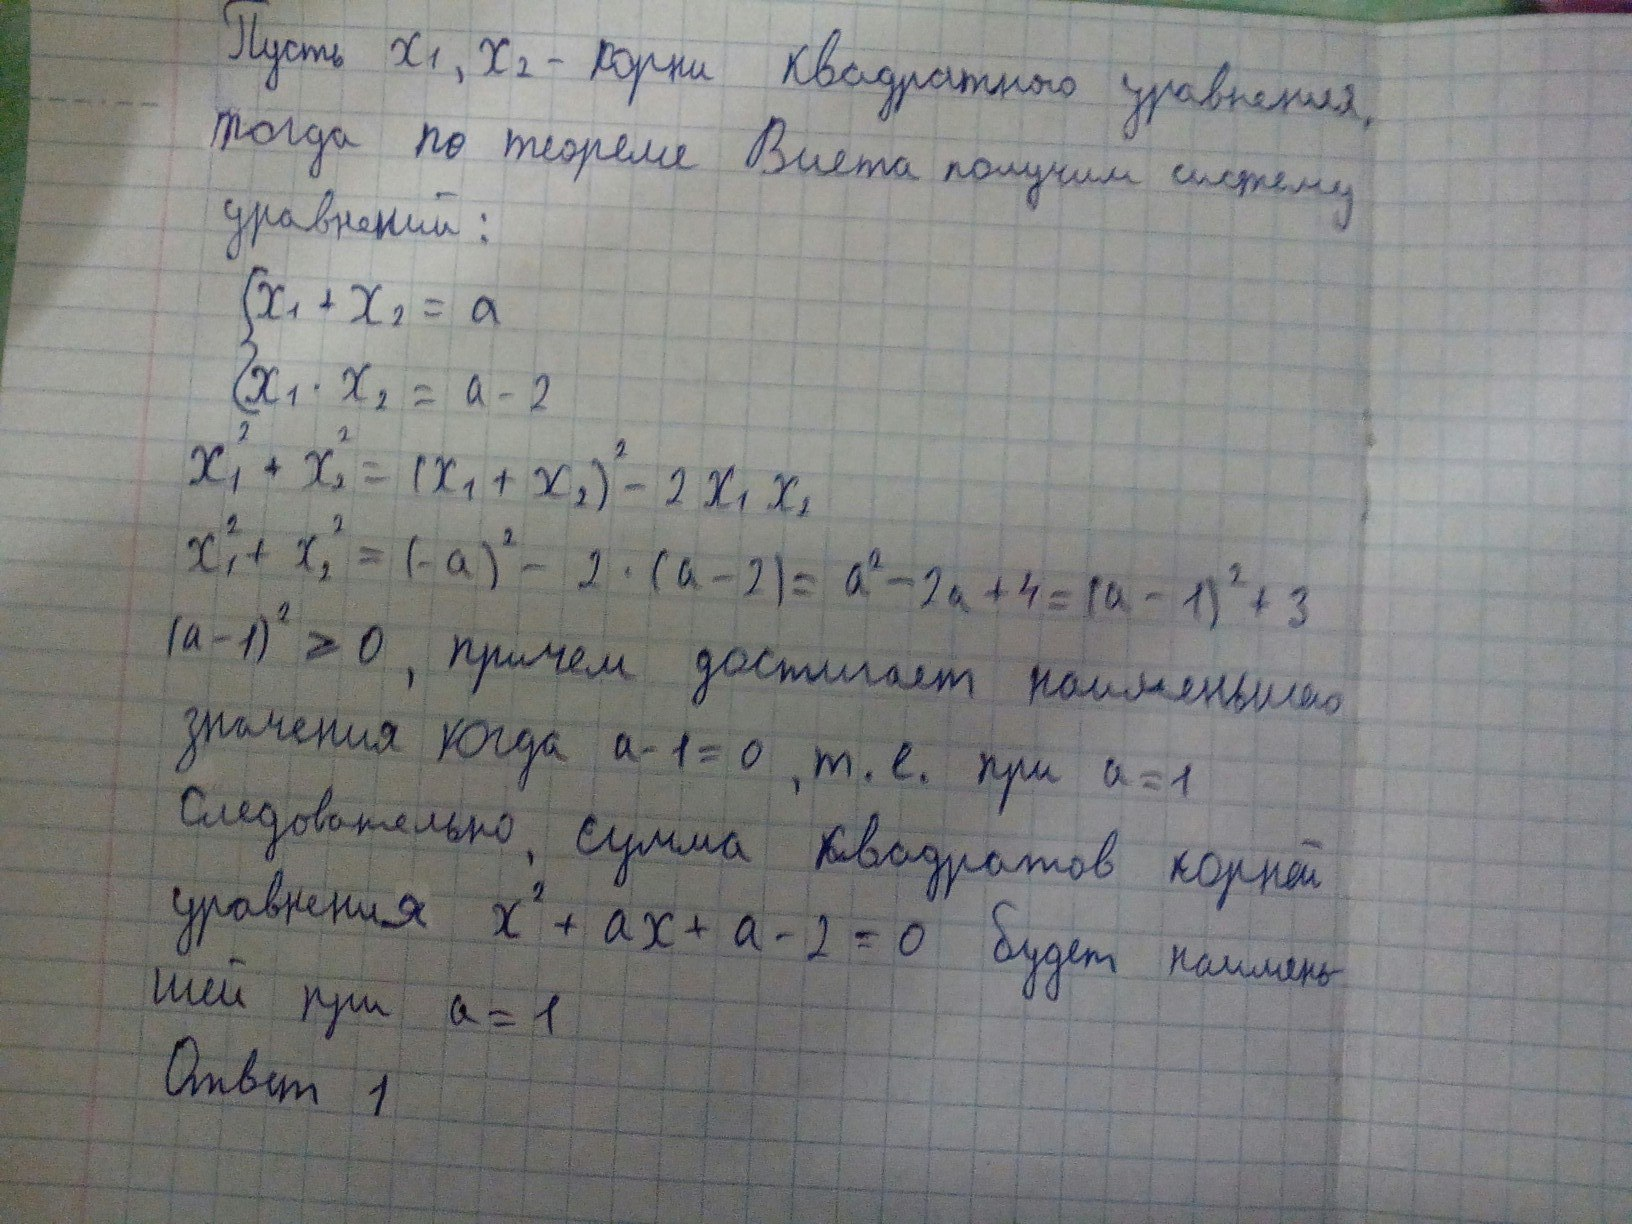 Пусть x₁, x₂ - корни квадратного уравнения,
тогда по теореме Виета получим систему
уравнений:
{x₁ + x₂ = a
{x₁ · x₂ = a - 2
x₁² + x₂² = (x₁ + x₂)² - 2 x₁ x₂
x₁² + x₂² = (-a)² - 2 · (a - 2) = a² - 2a + 4 = (a - 1)² + 3
(a - 1)² ≥ 0, причем достигает наименьшего
значения когда a - 1 = 0, т.е. при a = 1
Следовательно, сумма квадратов корней
уравнения x² + ax + a - 2 = 0 будет наимень
шей при a = 1
Ответ 1